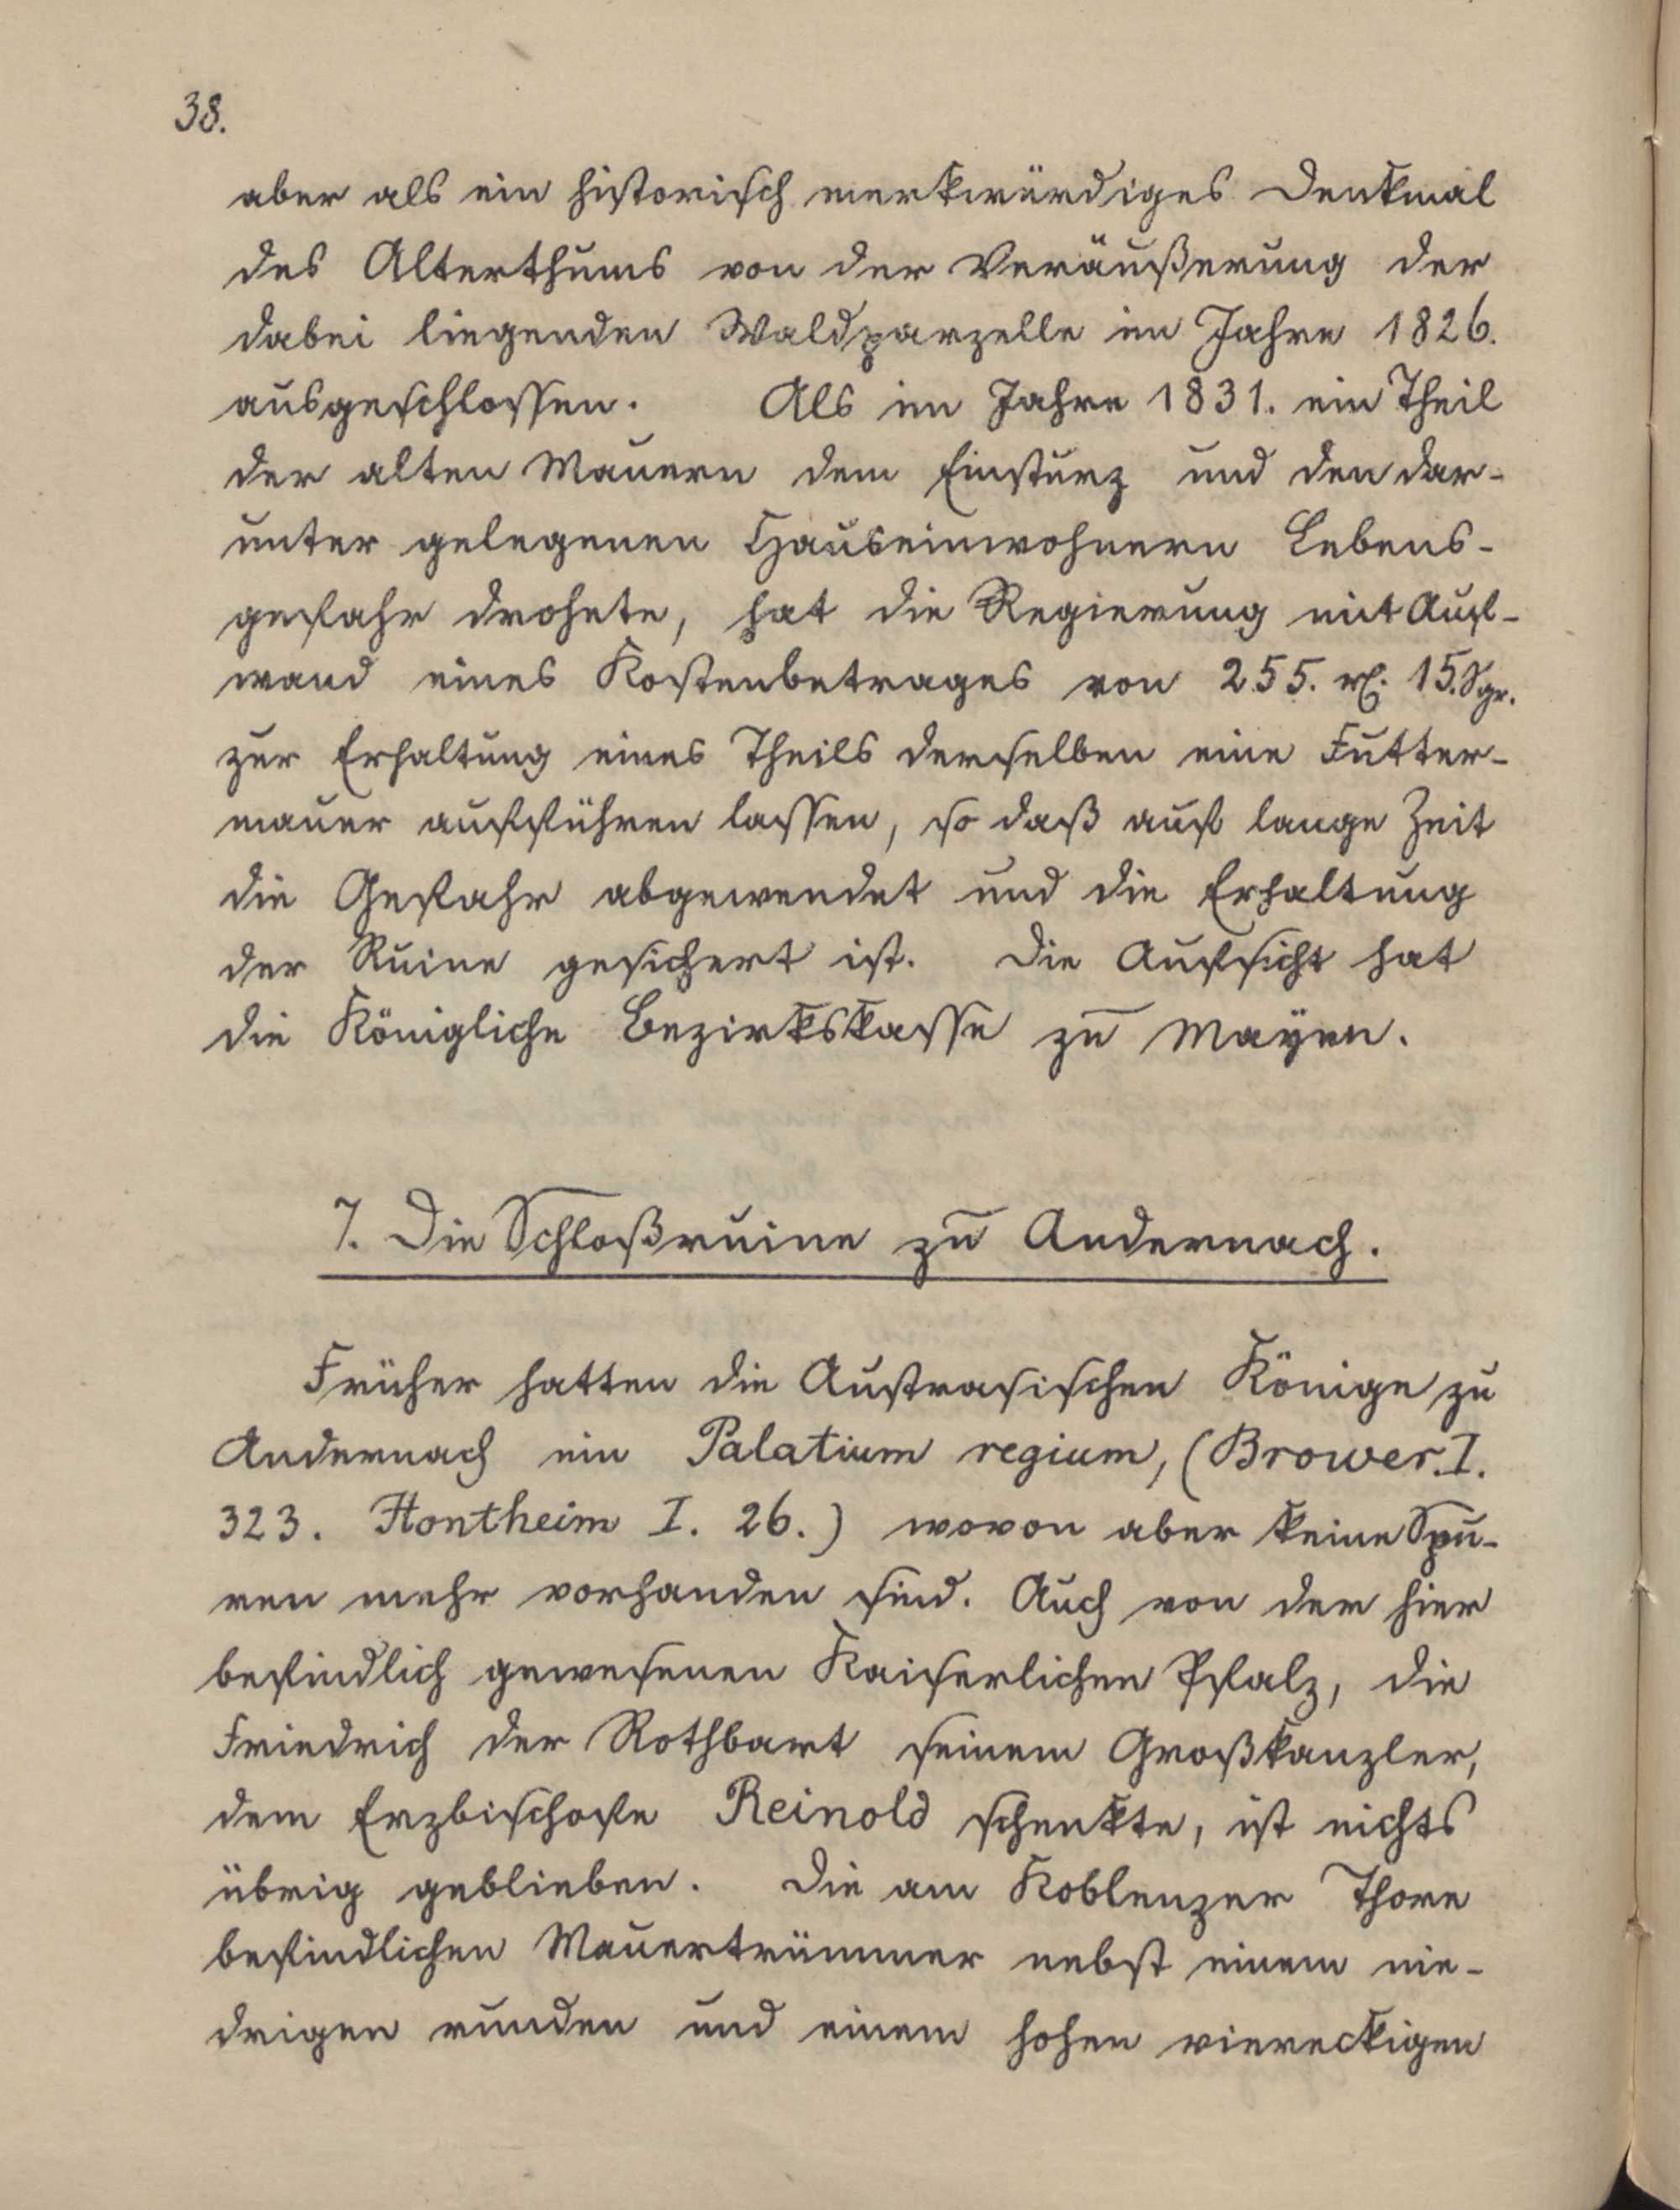 38.
aber als ein historisch merkwürdiges Denkmal
des Alterthums von der Veräußerung der
dabei liegenden Waldparzelle im Jahre 1826.
ausgeschlossen. Als im Jahre 1831. ein Theil
der alten Mauern dem Einsturz und den dar-
unter gelegenen Hauseinwohnern Lebens-
gefahr drohete, hat die Regierung mit Auf-
wand eines Kostenbetrages von 255. rℓ. 15. Sgr.
zur Erhaltung eines Theils derselben eine Futter-
mauer aufführen lassen, so daß auf lange Zeit
die Gefahr abgewendet und die Erhaltung
der Ruine gesichert ist. Die Aufsicht hat
die Königliche Bezirkskasse zu Mayen.
7. Die Schloßruine zu Andernach.
Früher hatten die Austrasischen Könige zu
Andernach ein Palatium regium, (Brower. I.
323. Hontheim I. 26.) wovon aber keine Spu-
ren mehr vorhanden sind. Auch von der hier
befindlich gewesenen Kaiserlichen Pfalz, die
Friedrich der Rothbart seinem Großkanzler,
dem Erzbischofe Reinold schenkte, ist nichts
übrig geblieben. Die am Koblenzer Thore
befindlichen Mauertrümmer nebst einem nie-
drigen runden und einem hohen viereckigen